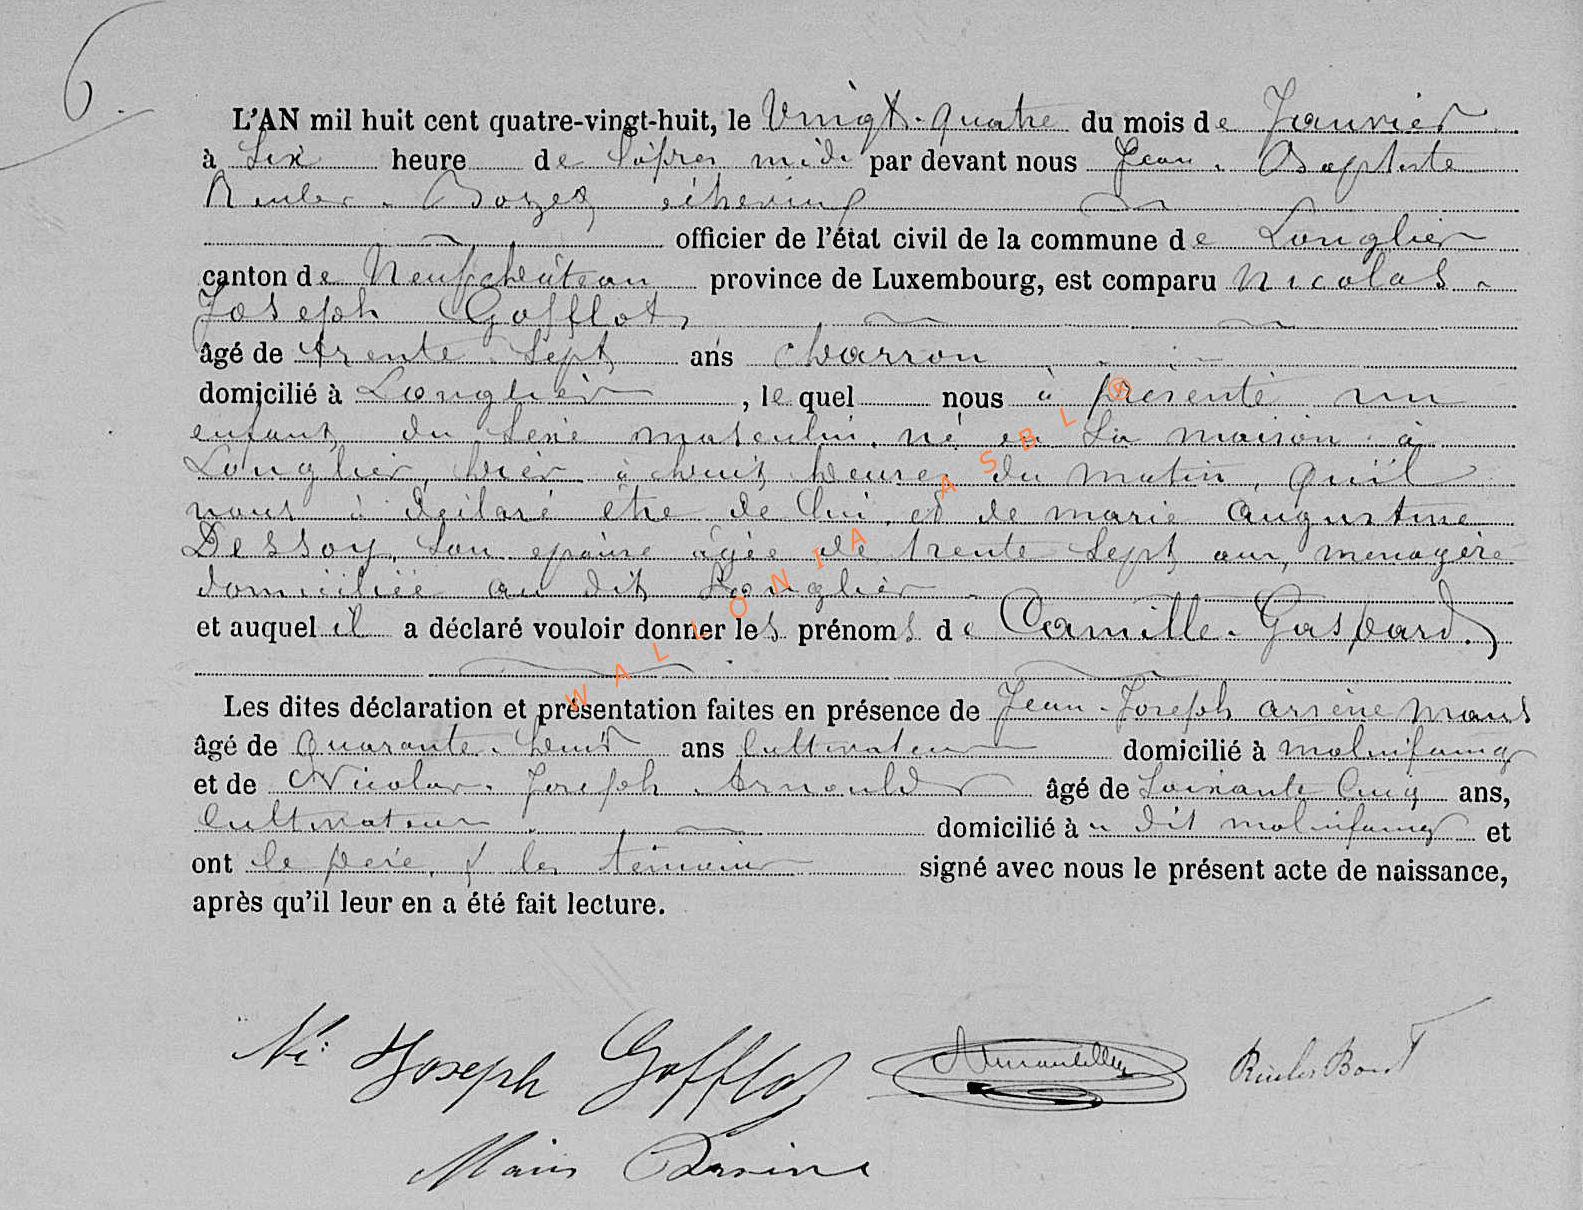 6.
L'AN mil huit cent quatre-vingt-huit, le Vingt-quatre du mois de Janvier
à Six heure de l'après midi par devant nous Jean-Baptiste
échevin
officier de l'état civil de la commune de Longlier
canton de Neufchâteau province de Luxembourg, est comparu Nicolas-
Joseph Gofflot,
âgé de trente-Sept ans charron
domicilié à Longlier, le quel nous à présenté un
enfant du Sexe masculin, né en Sa maison à
Longlier, hier à huit heures du matin, qu'il
nous à déclaré être de lui et de marie Augustine
Dessoy, Son épouse âgée de trente Sept ans, menagère
domiciliée au dit Longlier
et auquel il a déclaré vouloir donner les prénoms de Camille-Gaspard.
Les dites déclaration et présentation faites en présence de Jean-Joseph arsène
âgé de Quarante-huit ans Cultivateur domicilié à molinfaing
et de Nicolas-Joseph Arnould âgé de Soixante Cinq ans,
Cultivateur domicilié à u dit molinfaing et
ont le père, & les témoins signé avec nous le présent acte de naissance,
après qu'il leur en a été fait lecture.
Ns: Joseph Gofflot
WALLONIA ASBL ®